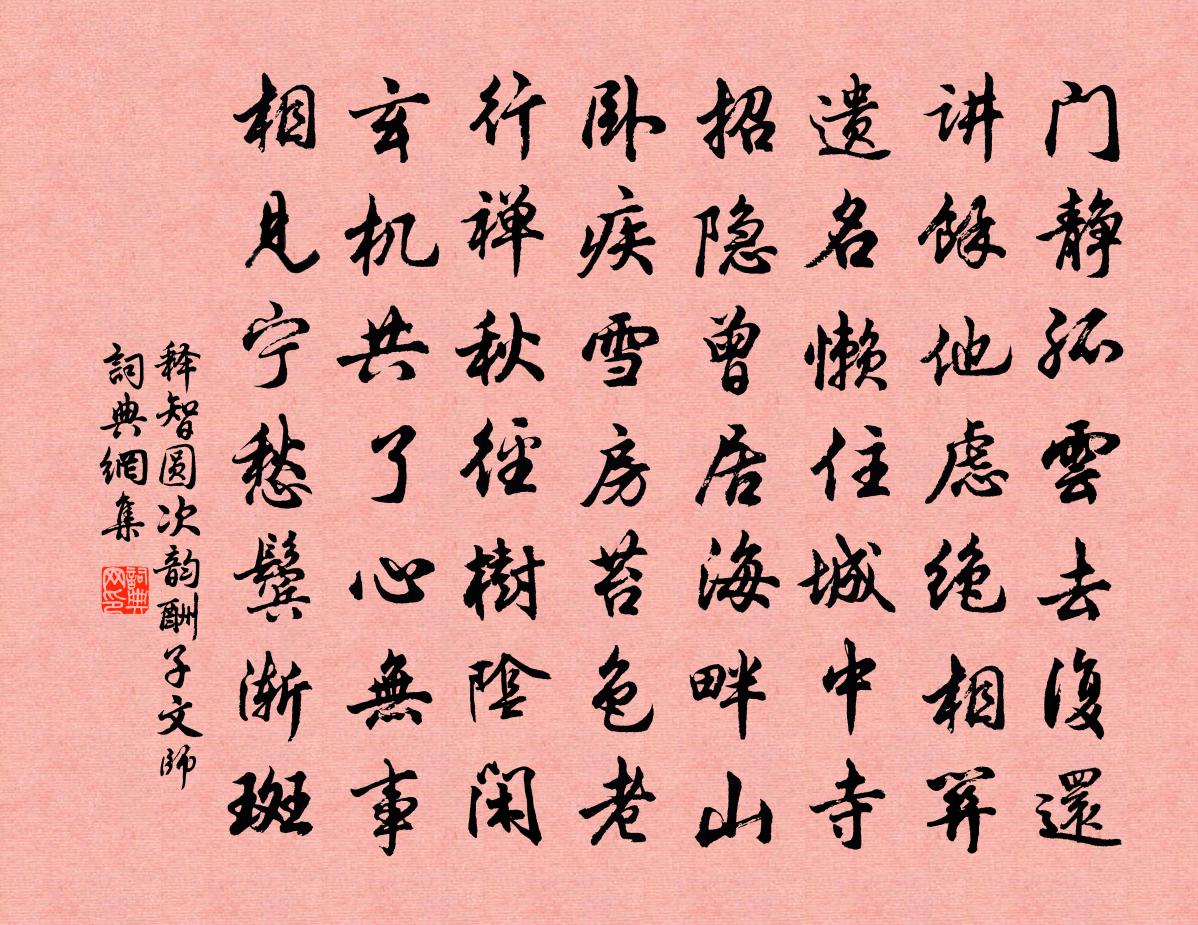 门静孤雲去復還
讲餘他慮绝相関
遗名懒住城中寺
招隐曾居海畔山
卧疾雪房苔色老
行禅秋徑樹陰闲
玄机共了心無事
相见宁愁鬓渐斑
释智圆次韵酬子文師
詞典網集
詞典网印